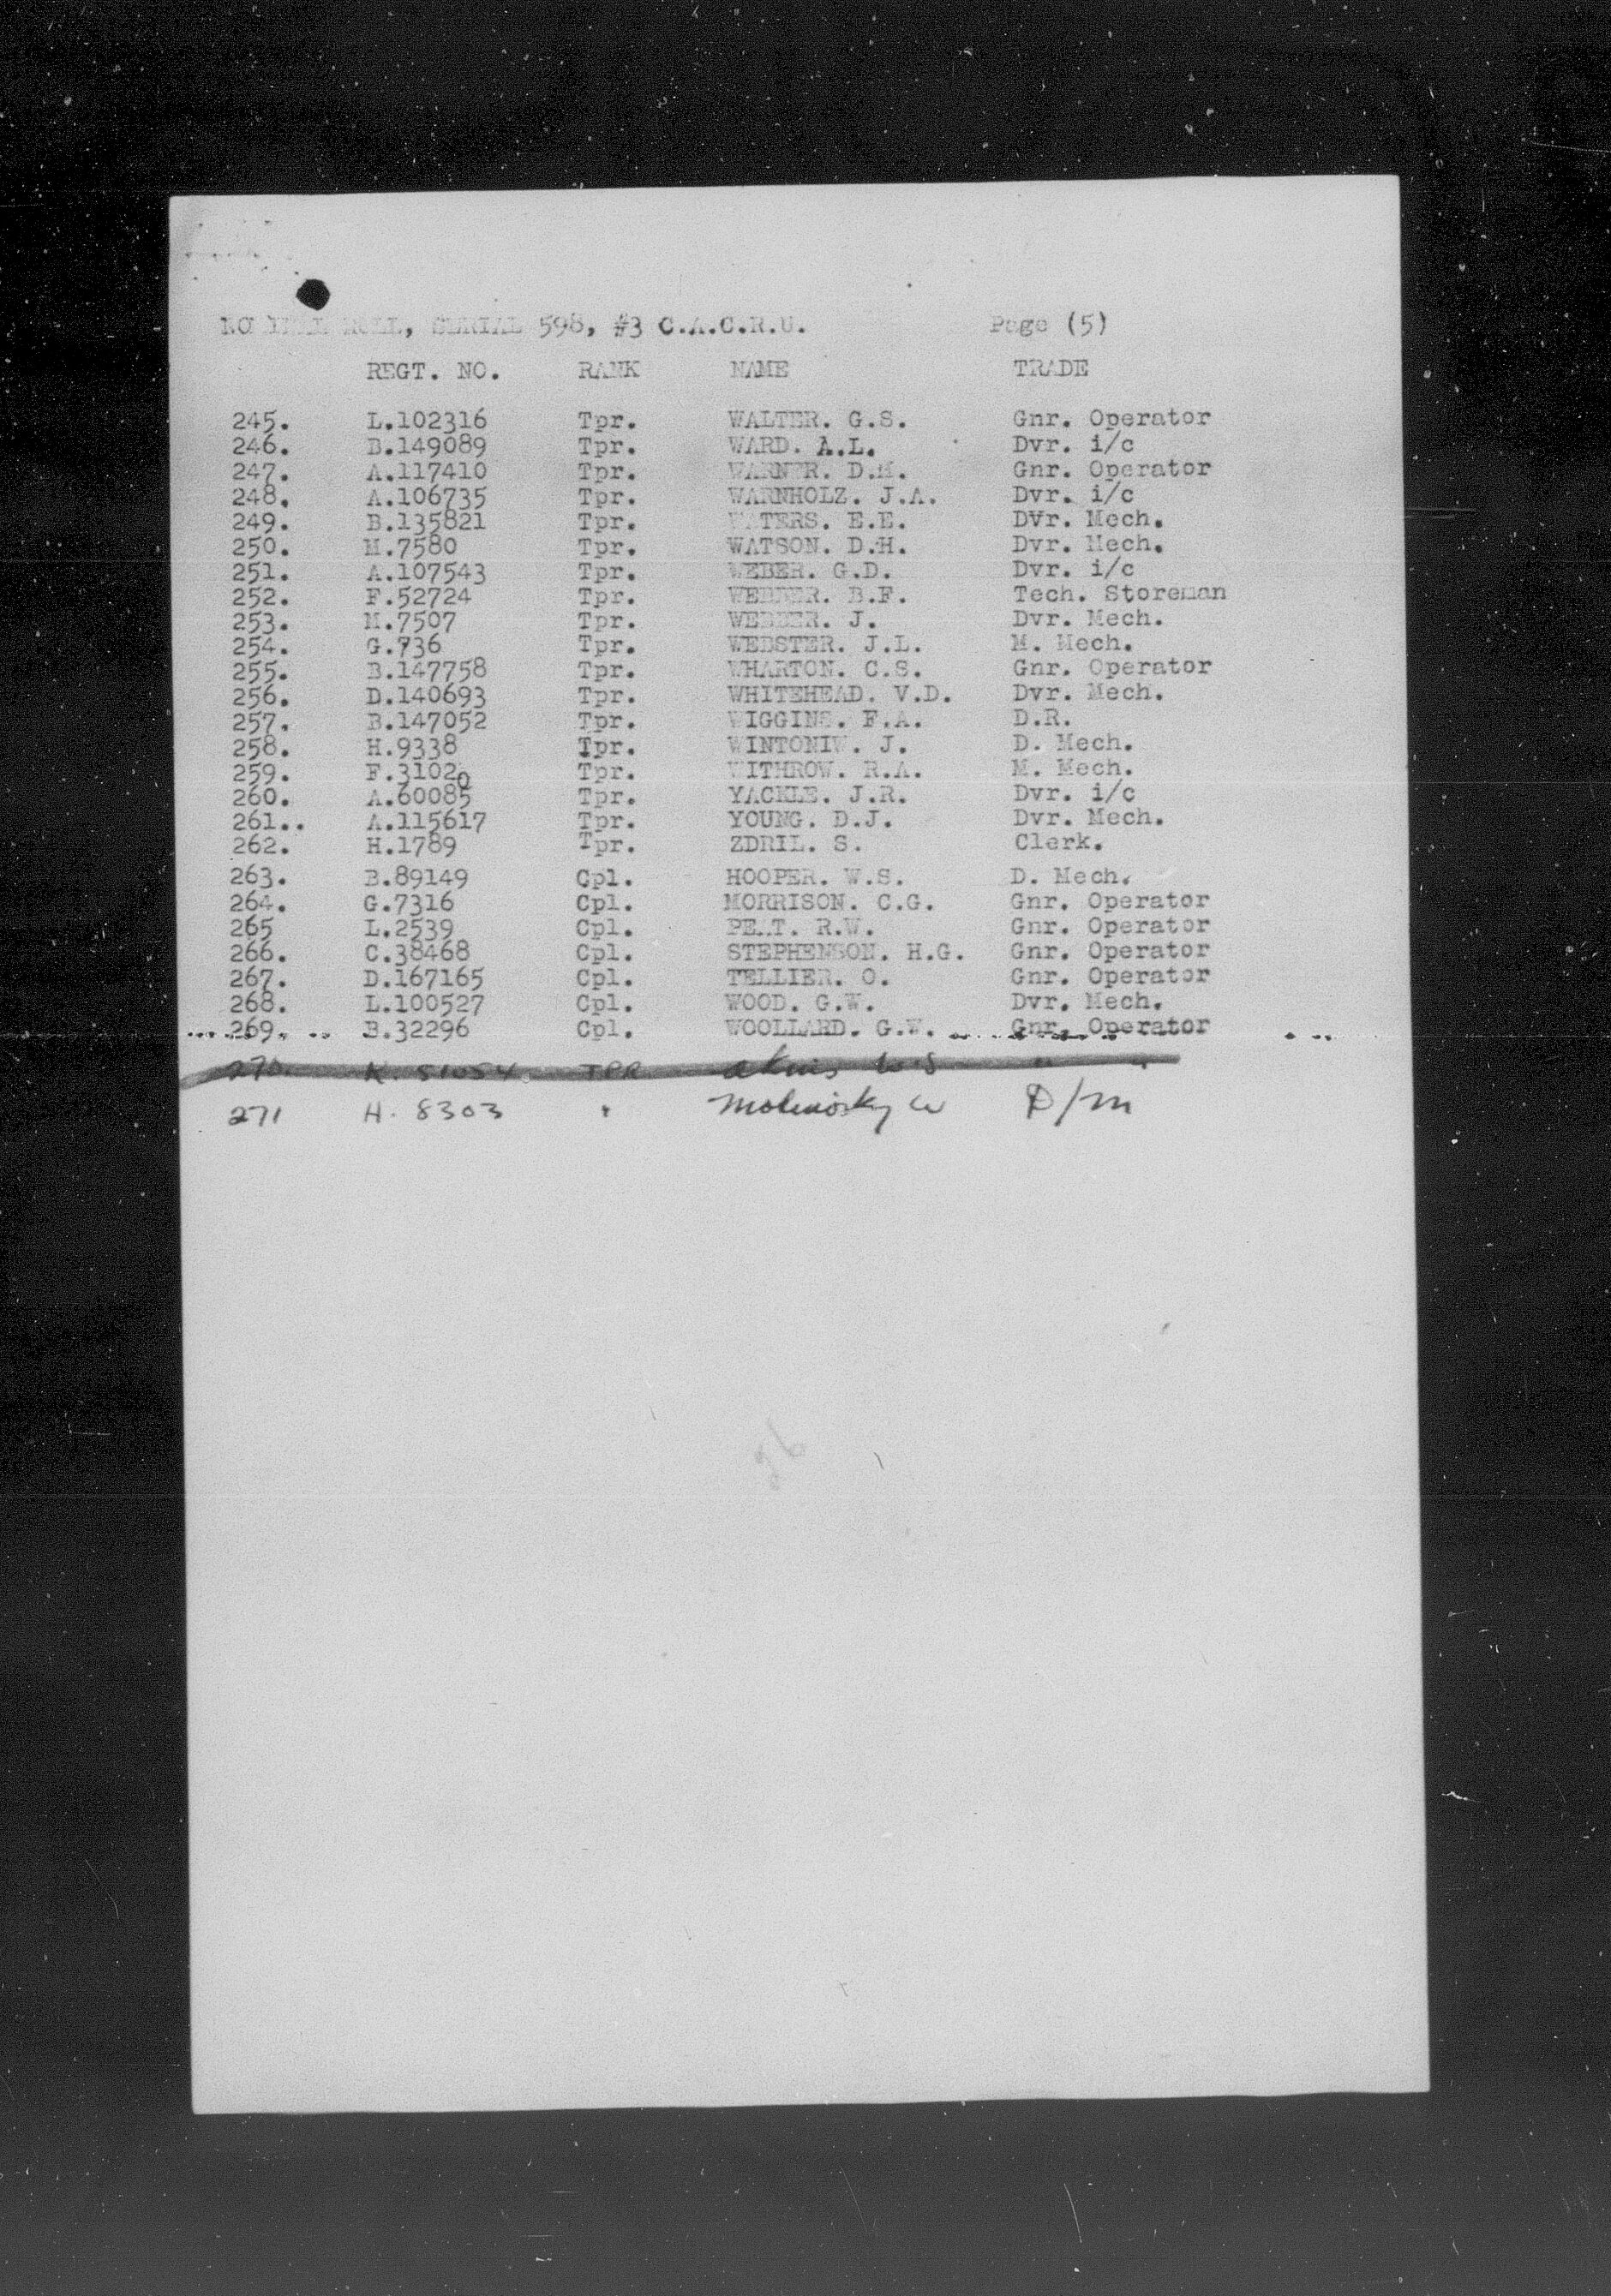 ROLL, SERIAL 598, #3 C.A.C.R.U. Page (5)
REGT. NO. RANK NAME TRADE
245. L.102316 Tpr. WALTER. G.S. Gnr. Operator
246. B.149089 Tpr. WARD. A.L. Dvr. i/c
247. A.117410 Tpr. WARNER. D.M. Gnr. Operator
248. A.106735 Tpr. WARNHOLZ. J.A. Dvr. i/c
249. B.135821 Tpr. WATERS. E.E. DVr. Mech.
250. M.7580 Tpr. WATSON. D.H. Dvr. Mech.
251. A.107543 Tpr. WEBER. G.D. Dvr. i/c
252. F.52724 Tpr. B.F. Tech. Storeman
253. M.7507 Tpr. WEBBER. J. Dvr. Mech.
254. G.736 Tpr. WEBSTER. J.L. M. Mech.
255. B.147758 Tpr. WHARTON. C.S. Gnr. Operator
256. D.140693 Tpr. WHITEHEAD. V.D. Dvr. Mech.
257. B.147052 Tpr. WIGGINS. F.A. D.R.
258. H.9338 Tpr. WINTONIW. J. D. Mech.
259. F.31020 Tpr. WITHROW. R.A. M. Mech.
260. A.60085 Tpr. YACKLE. J.R. Dvr. i/c
261.. A.115617 Tpr. YOUNG. D.J. Dvr. Mech.
262. H.1789 Tpr. ZDRIL. S. Clerk.
263. B.89149 Cpl. HOOPER. W.S. D. Mech.
264. G.7316 Cpl. MORRISON. C.G. Gnr. Operator
265 L.2539 Cpl. PEAT. R.W. Gnr. Operator
266. C.38468 Cpl. STEPHENSON. H.G. Gnr. Operator
267. D.167165 Cpl. TELLIER. O. Gnr. Operator
268. L.100527 Cpl. WOOD. G.W. Dvr. Mech.
269. B.32296 Cpl. WOOLLARD. G.W. Gnr. Operator
270. K. 51054 TPR " "
271 H. 8303 " D/M